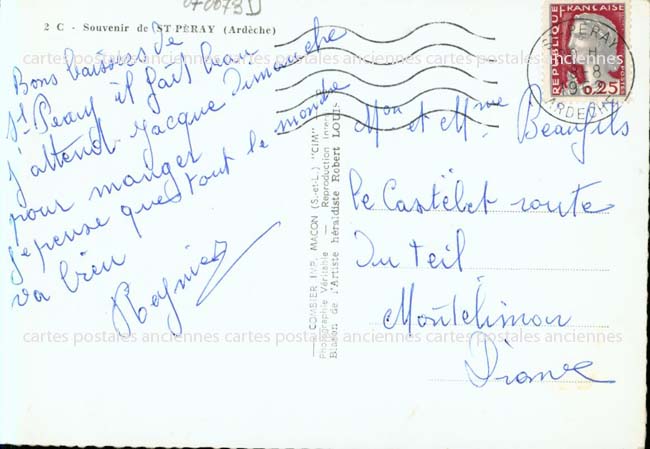 070073D
2 C - Souvenir de ST PÉRAY (Ardèche)
Bons baisers de
St Peray il fait beau
j'attend Jacque Dimanche
pour manger
je pense que tout le monde
va bien
COMBIER IMP. MACON (S.-et-L.) "CIM"
Photographie Véritable — Reproduction Inter
Blason de l'Artiste héraldiste Robert LOUIS
RÉPUBLIQUE FRANÇAISE
0,25
PERAY
ARDECHE
Mon et Mme Beaufils
le Castelet route
Du teil
Montelimar
Drome
cartes postales anciennes cartes postales anciennes cartes postales anciennes
cartes postales anciennes cartes postales anciennes cartes postales anciennes
cartes postales anciennes cartes postales anciennes cartes postales anciennes